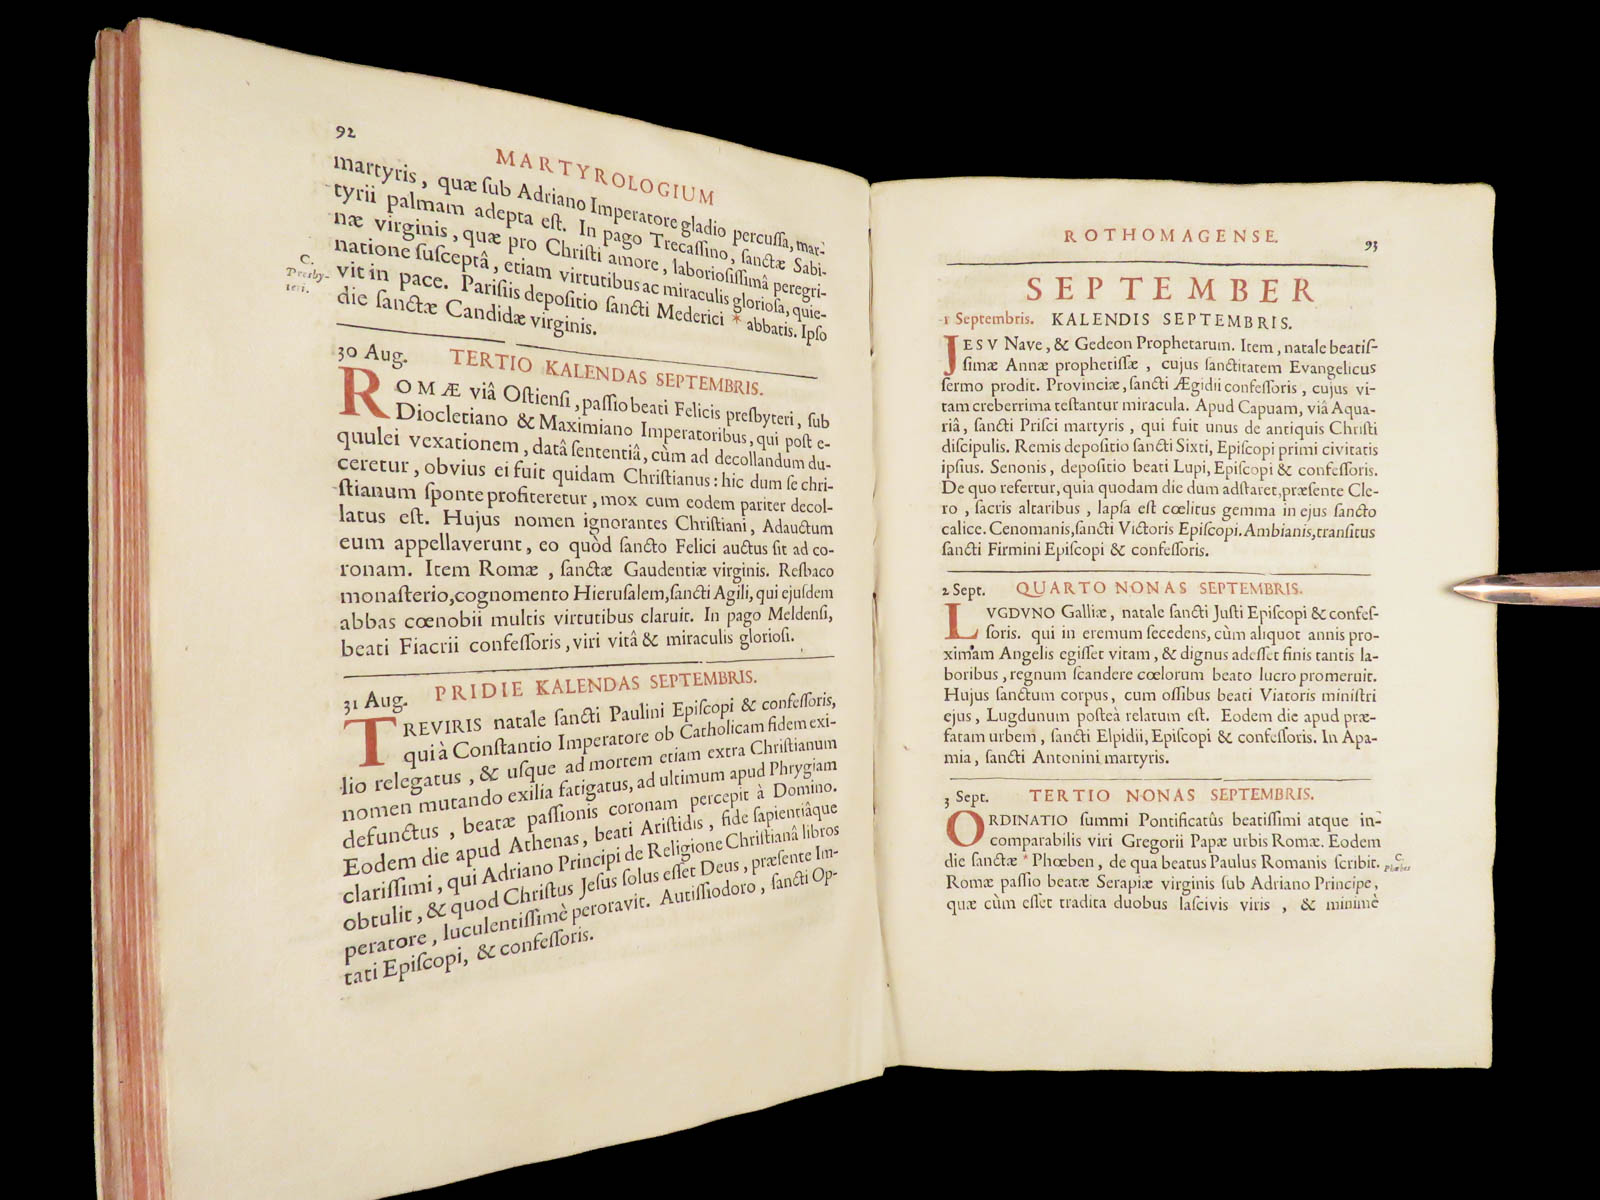 92
MARTYROLOGIUM
martyris, quæ ſub Adriano Imperatore gladio percuſſa, mar-
tyrii palmam adepta eſt. In pago Trecaſſino, ſanctæ Sabi-
næ virginis, quæ pro Chriſti amore, laborioſiſſimâ peregri-
natione ſuſceptâ, etiam virtutibus ac miraculis glorioſa, quie-
vit in pace. Pariſiis depoſitio ſancti Mederici * abbatis. Ipſo
die ſanctæ Candidæ virginis.
C.
Presby-
teri.
30 Aug. TERTIO KALENDAS SEPTEMBRIS.
ROMÆ viâ Oſtienſi, paſſio beati Felicis presbyteri, ſub
Diocletiano & Maximiano Imperatoribus, qui poſt e-
quulei vexationem, datâ ſententiâ, cùm ad decollandum du-
ceretur, obvius ei fuit quidam Chriſtianus: hic dum ſe chri-
ſtianum ſponte profiteretur, mox cum eodem pariter decol-
latus eſt. Hujus nomen ignorantes Chriſtiani, Adauctum
eum appellaverunt, eo quòd ſancto Felici auctus ſit ad co-
ronam. Item Romæ, ſanctæ Gaudentiæ virginis. Resbaco
monaſterio, cognomento Hieruſalem, ſancti Agili, qui ejuſdem
abbas cœnobii multis virtutibus claruit. In pago Meldenſi,
beati Fiacrii confeſſoris, viri vitâ & miraculis glorioſi.
31 Aug. PRIDIE KALENDAS SEPTEMBRIS.
TREVIRIS natale ſancti Paulini Epiſcopi & confeſſoris,
qui à Conſtantio Imperatore ob Catholicam fidem exi-
lio relegatus, & uſque ad mortem etiam extra Chriſtianum
nomen mutando exilia fatigatus, ad ultimum apud Phrygiam
defunctus, beatæ paſſionis coronam percepit à Domino.
Eodem die apud Athenas, beati Ariſtidis, fide ſapientiâque
clariſſimi, qui Adriano Principi de Religione Chriſtianâ libros
obtulit, & quod Chriſtus Jeſus ſolus eſſet Deus, præſente Im-
peratore, luculentiſſimè peroravit. Autiſſiodoro, ſancti Op-
tati Epiſcopi, & confeſſoris.
ROTHOMAGENSE. 93
SEPTEMBER
1 Septembris. KALENDIS SEPTEMBRIS.
JESV Nave, & Gedeon Prophetarum. Item, natale beatiſ-
ſimæ Annæ prophetiſſæ, cujus ſanctitatem Evangelicus
ſermo prodit. Provinciæ, ſancti Ægidii confeſſoris, cujus vi-
tam creberrima teſtantur miracula. Apud Capuam, viâ Aqua-
riâ, ſancti Priſci martyris, qui fuit unus de antiquis Chriſti
diſcipulis. Remis depoſitio ſancti Sixti, Epiſcopi primi civitatis
ipſius. Senonis, depoſitio beati Lupi, Epiſcopi & confeſſoris.
De quo refertur, quia quodam die dum adſtaret, præſente Cle-
ro, ſacris altaribus, lapſa eſt cœlitus gemma in ejus ſancto
calice. Cenomanis, ſancti Victoris Epiſcopi. Ambianis, tranſitus
ſancti Firmini Epiſcopi & confeſſoris.
2 Sept. QUARTO NONAS SEPTEMBRIS.
LVGDVNO Galliæ, natale ſancti Juſti Epiſcopi & confeſ-
ſoris. qui in eremum ſecedens, cùm aliquot annis pro-
ximam Angelis egiſſet vitam, & dignus adeſſet finis tantis la-
boribus, regnum ſcandere cœlorum beato lucro promeruit.
Hujus ſanctum corpus, cum oſſibus beati Viatoris miniſtri
ejus, Lugdunum poſteà relatum eſt. Eodem die apud præ-
fatam urbem, ſancti Elpidii, Epiſcopi & confeſſoris. In Apa-
mia, ſancti Antonini martyris.
3 Sept. TERTIO NONAS SEPTEMBRIS.
ORDINATIO ſummi Pontificatûs beatiſſimi atque in-
comparabilis viri Gregorii Papæ urbis Romæ. Eodem
die ſanctæ * Phœben, de qua beatus Paulus Romanis ſcribit.
Romæ paſſio beatæ Serapiæ virginis ſub Adriano Principe,
quæ cùm eſſet tradita duobus laſcivis viris, & minimè
C.
Phœbes